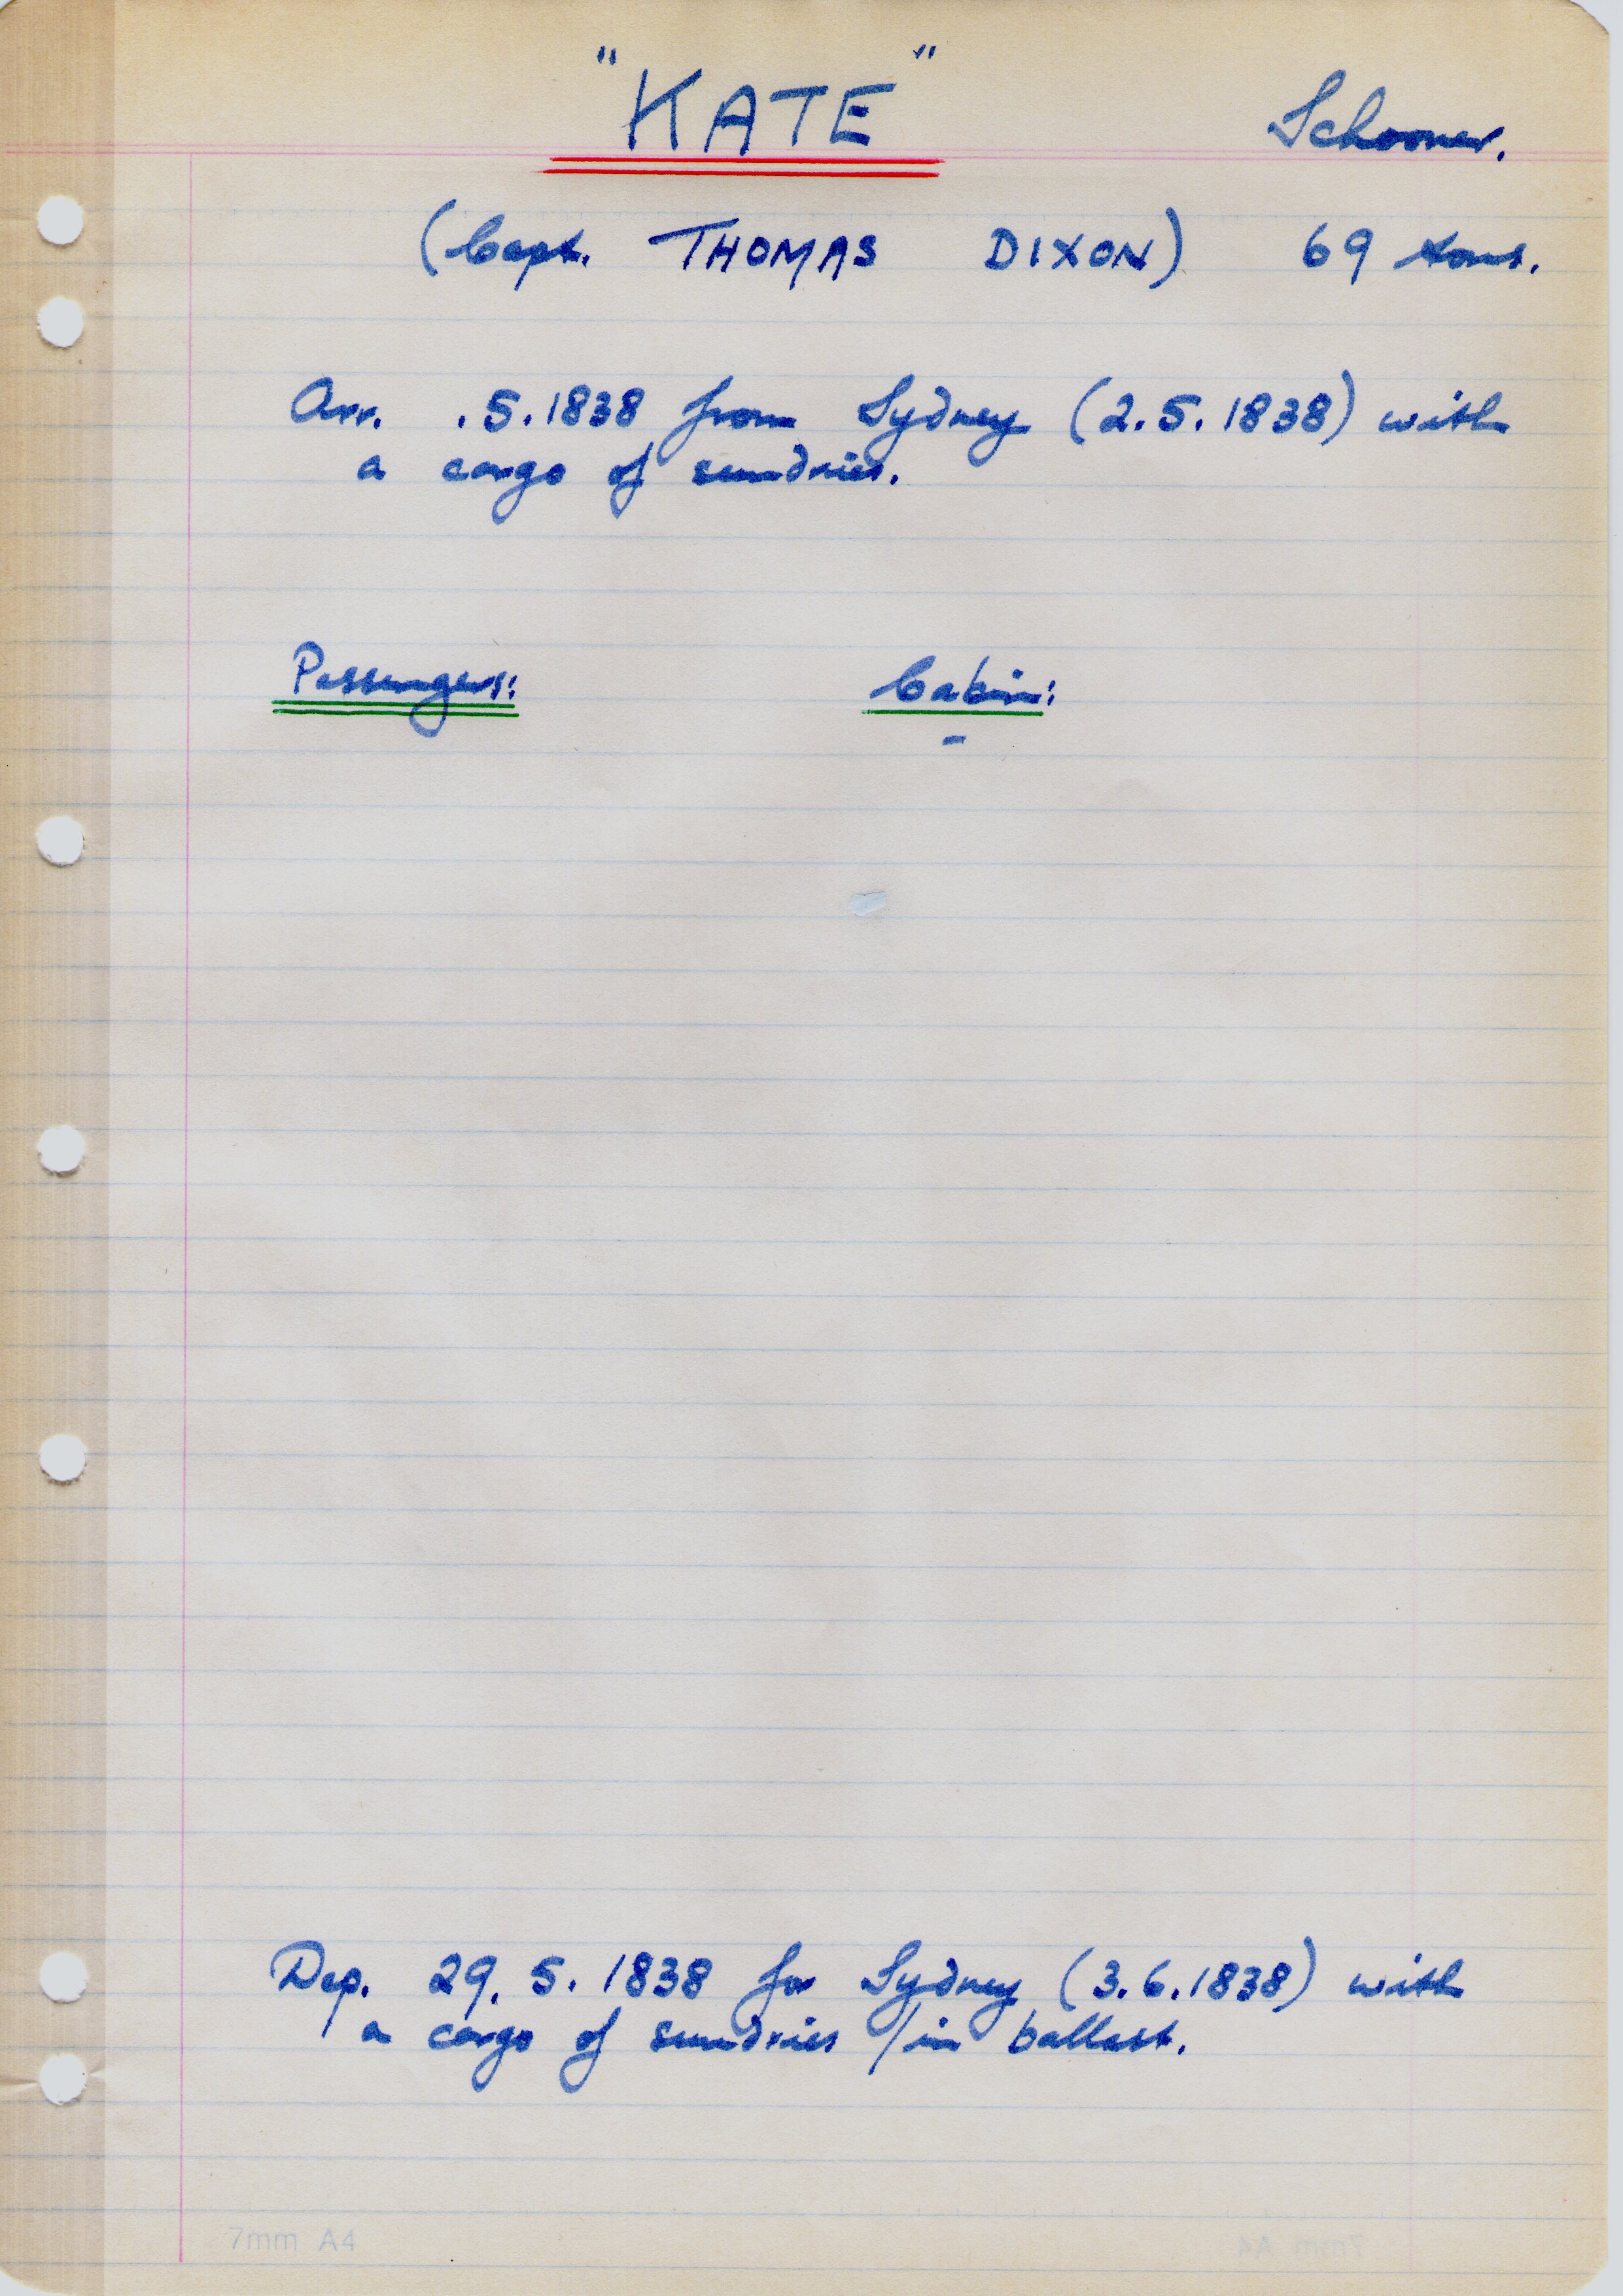 "KATE" Schooner.
(Capt. THOMAS DIXON) 69 tons.
Arr. .5.1838 from Sydney (2.5.1838) with
a cargo of sundries.
Passengers: Cabin:
-
Dep. 29.5.1838 for Sydney (3.6.1838) with
a cargo of sundries / in ballast.
7mm A4